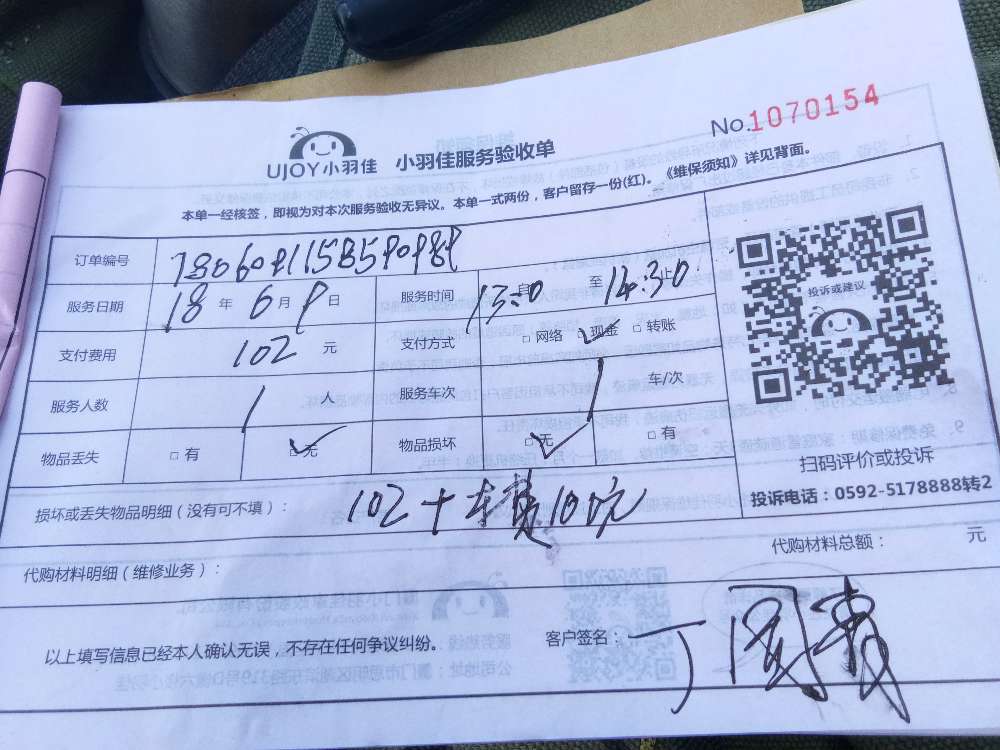 No.1070154
UJOY小羽佳 小羽佳服务验收单
本单一经核签，即视为对本次服务验收无异议。本单一式两份，客户留存一份(红)。《维保须知》详见背面。
订单编号
服务日期 18 年 6 月 9 日 服务时间 13:0 自 至 14:30 止
支付费用 102 元 支付方式 □ 网络 □ 现金 □ 转账
服务人数 1 人 服务车次 1 车/次
物品丢失 □ 有 □ 无 物品损坏 □ 无 □ 有
投诉或建议
扫码评价或投诉
投诉电话：0592-5178888转2
损坏或丢失物品明细（没有可不填）： 102 + 车费10元
代购材料总额： 元
代购材料明细（维修业务）：
以上填写信息已经本人确认无误，不存在任何争议纠纷。 客户签名：